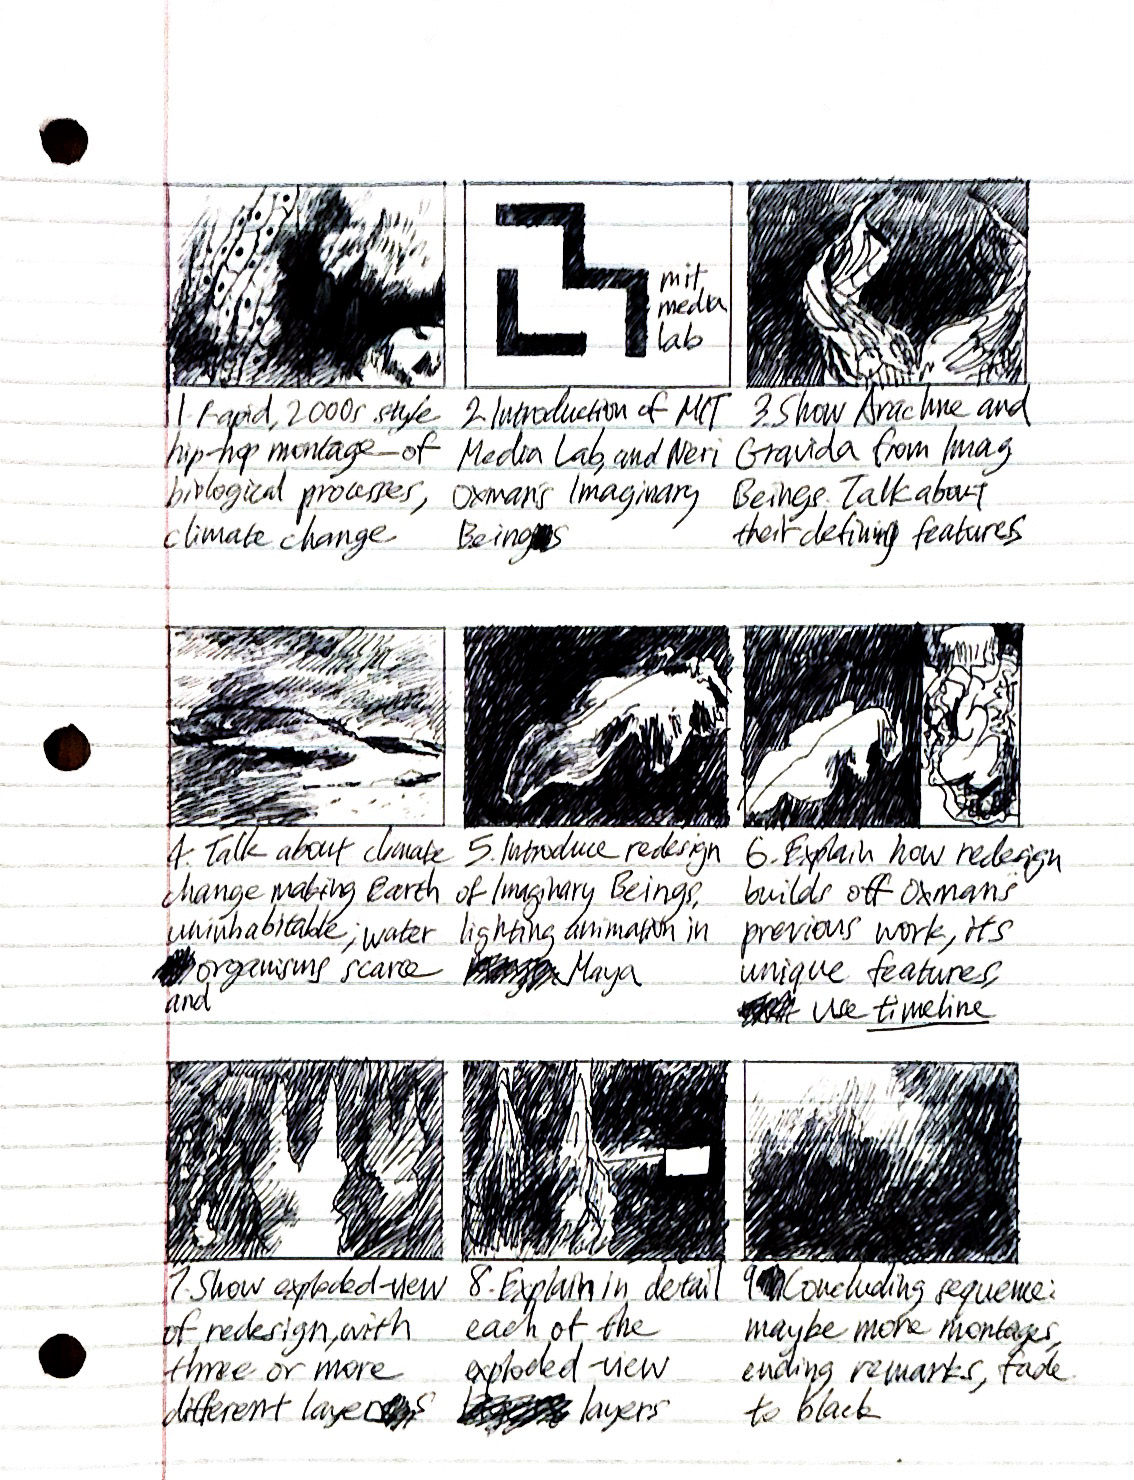 mit
media
lab
1. Rapid, 2000s style
hip-hop montage of
biological processes,
climate change
2. Introduction of MIT
Media Lab, and Neri
Oxman's Imaginary
Beings
3. Show Arachne and
Gravida from Imag
Beings. Talk about
their defining features
4. Talk about climate
change making Earth
uninhabitable; water
organisms scarce
and
5. Introduce redesign
of Imaginary Beings,
lighting animation in
Maya
6. Explain how redesign
builds off Oxman's
previous work, its
unique features,
use timeline
7. Show exploded-view
of redesign, with
three or more
different layers
8. Explain in detail
each of the
exploded-view
layers
9. Concluding sequence:
maybe more montages,
ending remarks, fade
to black